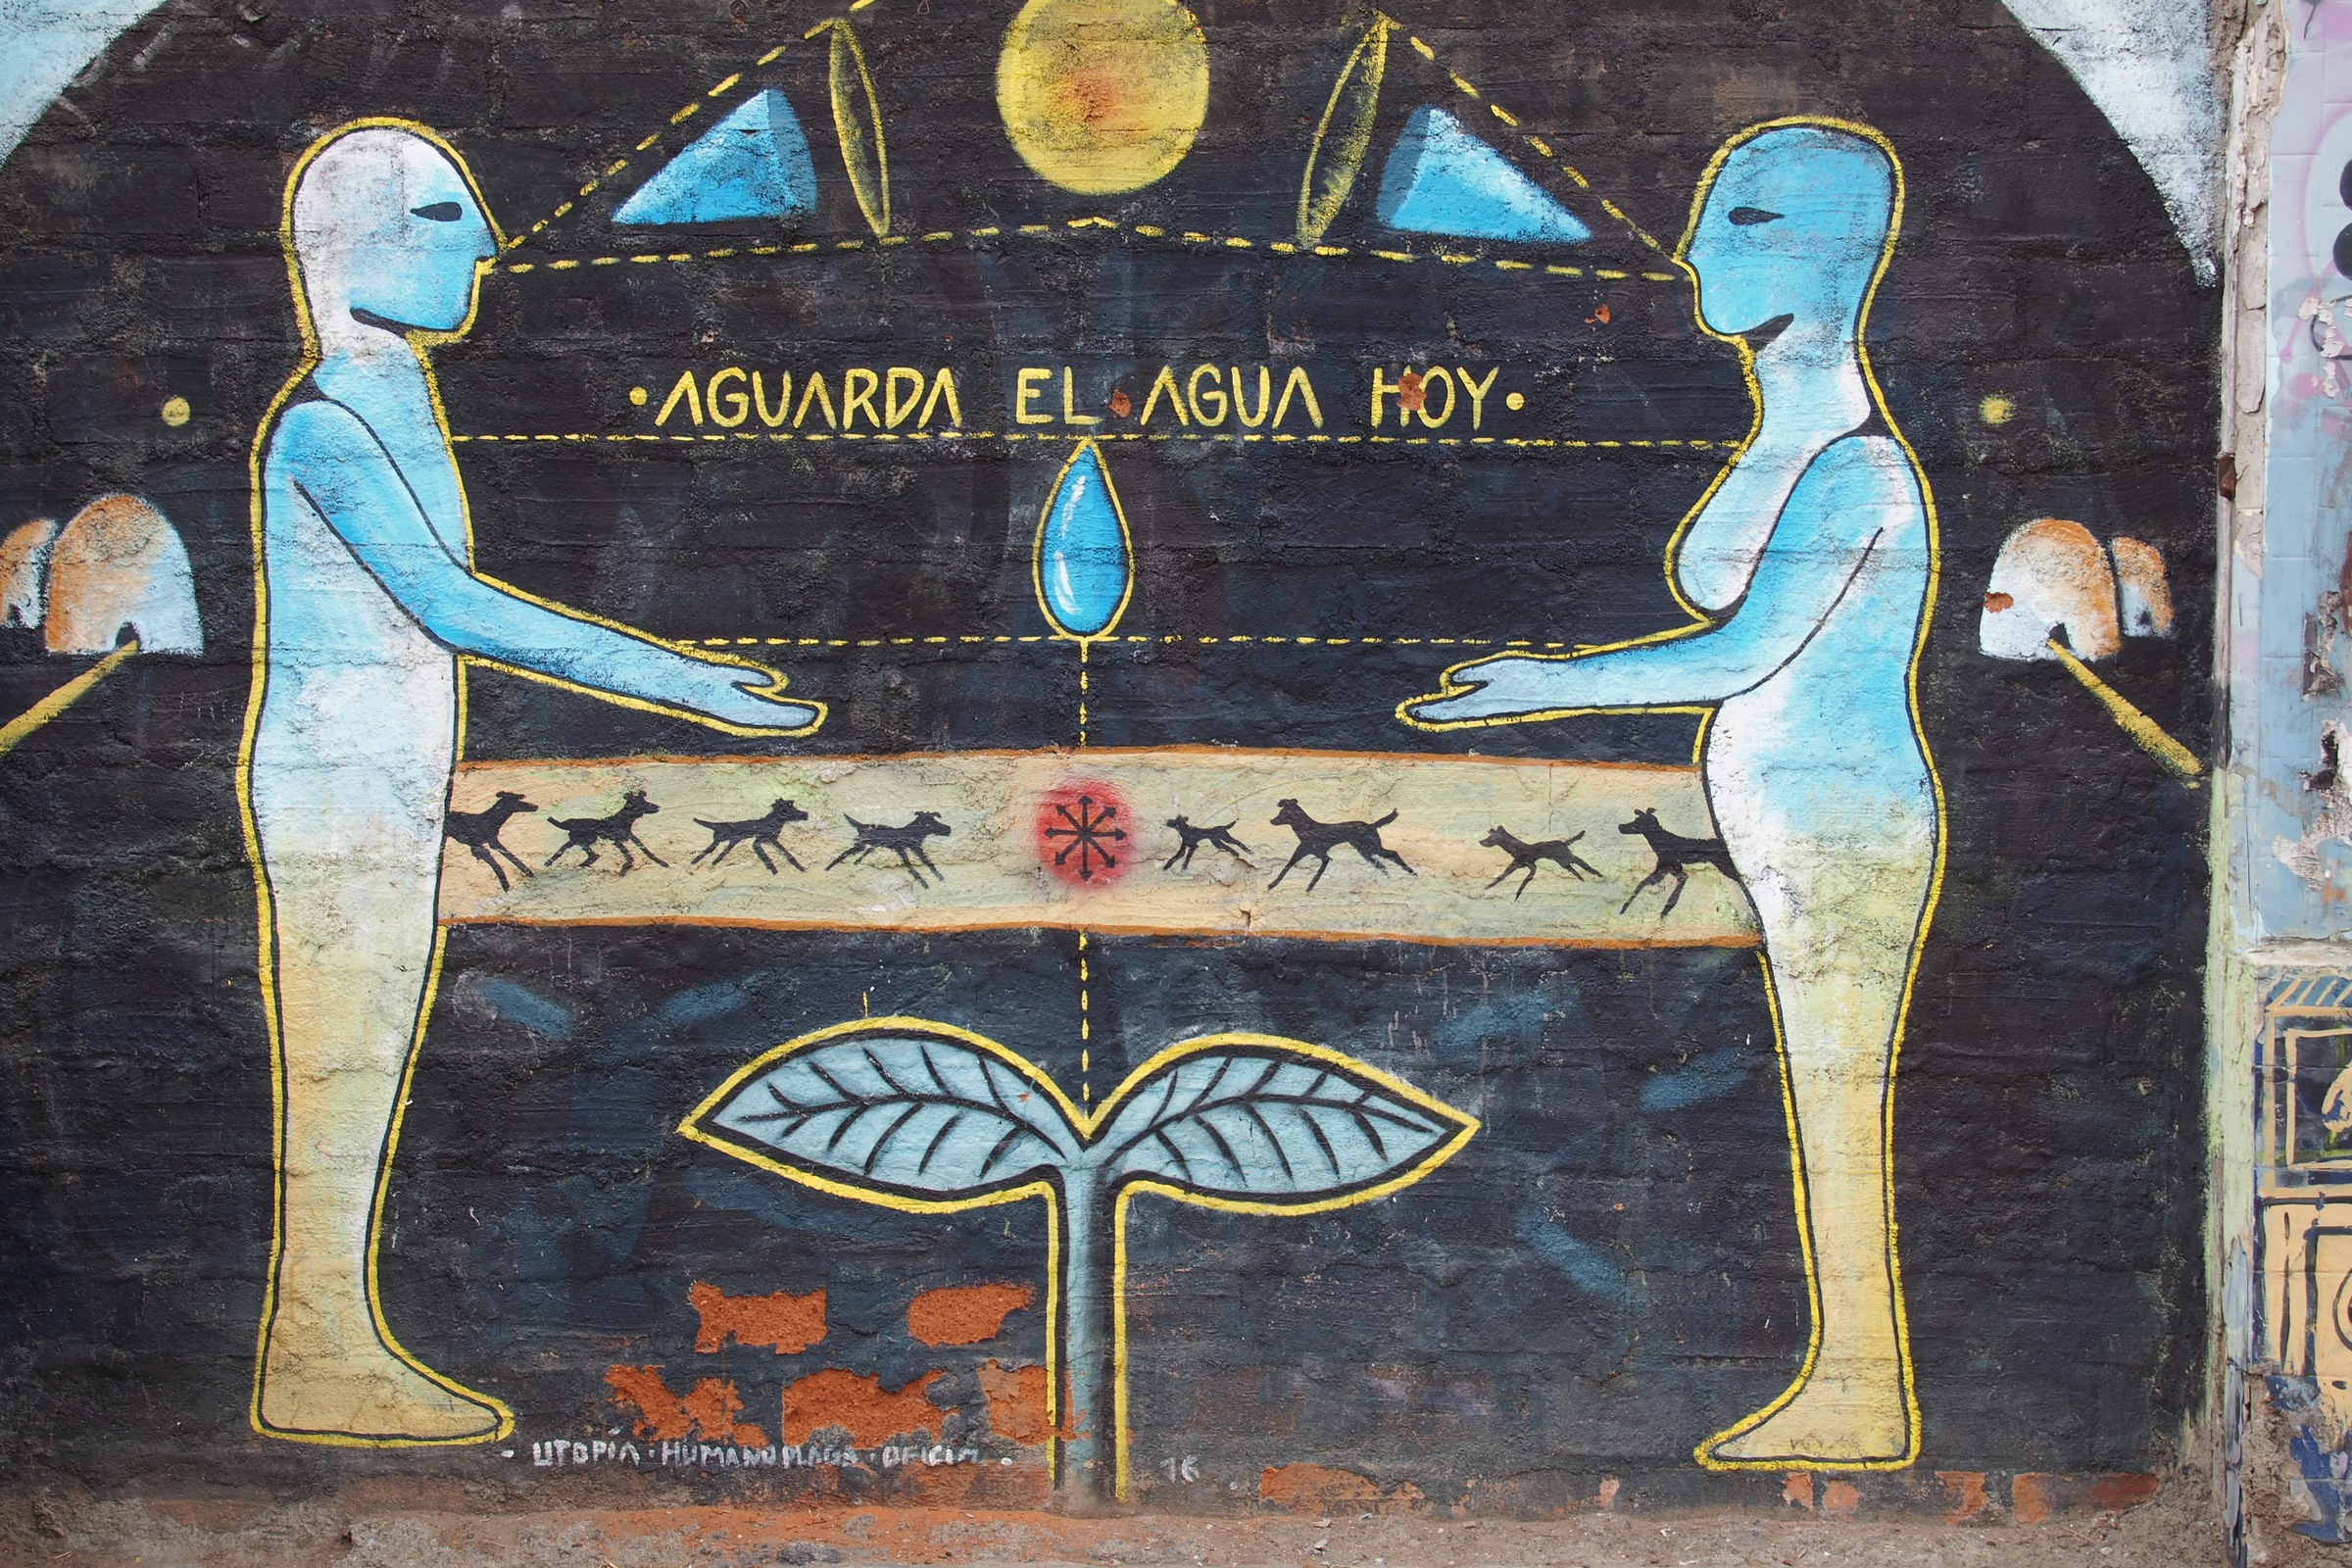 ·AGUARDA EL AGUA HOY·
- UTOPIA · HUMANO PLAGA ·
16